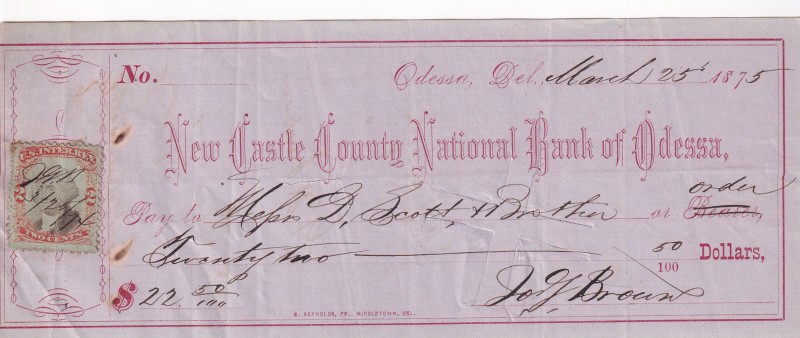 No.
Odessa, Del. March 25 1875
New Castle County National Bank of Odessa,
order
Pay to Messrs D, Scott, & Brother or Bearer,
Twenty two 50/100 Dollars,
$ 22. 50/100
Jos. G. Brown
E. REYNOLDS, PR., MIDDLETOWN, DEL.
U.S. INTER. REV.
TWO CENTS